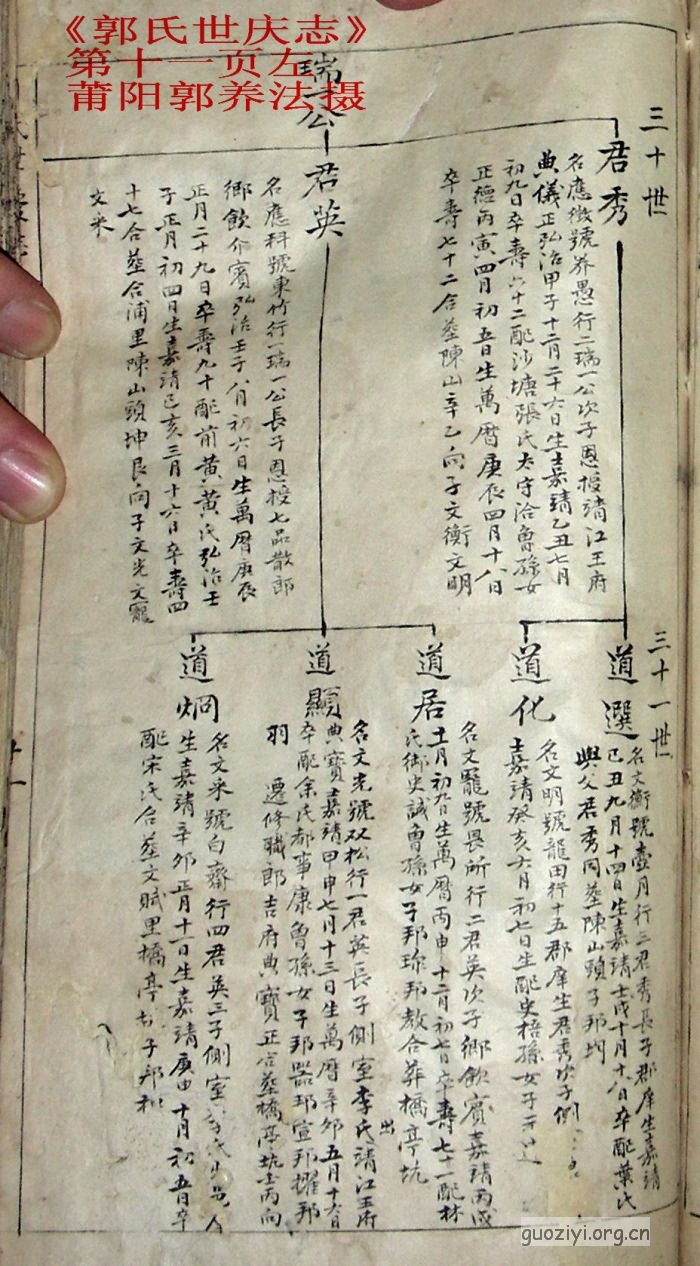 《郭氏世庆志》
第十一页左
莆阳郭养法摄
瑞一公
三十世
君秀
名應徵號养愚行二瑞一公次子恩授靖江王府
典儀正弘治甲子十二月二十六日生嘉靖乙丑七月
初九日卒壽六十二配沙塘張氏太守洽魯孫女
正德丙寅四月初五日生萬曆庚辰四月十八日
卒壽七十二合塟陳山辛乙向子文衡文明
君英
名應科號東竹行一瑞一公長子恩授七品散郎
鄉飲介賓弘治壬子八月初六日生萬曆庚辰
正月二十九日卒壽九十配前黄黄氏弘治壬
子正月初四日生嘉靖己亥三月十六日卒壽四
十七合塟合浦里陳山頭坤艮向子文光文寵
文米
三十一世
道選
名文衡號壺月行三君秀長子郡庠生嘉靖
己丑九月十四日生嘉靖壬戌十月十八日卒配葉氏
與父君秀同塟陳山頭子邦均
道化
名文明號龍田行十五郡庠生君秀次子側
嘉靖癸亥六月初七日生配史梧孫女子
道居
名文寵號畏所行二君英次子鄉飲賓嘉靖丙戌
十一月初九日生萬曆丙申十二月初七日卒壽七十一配林
氏御史誠魯孫女子邦珎邦教合葬橋亭坑
道顯
名文光號双松行一君英長子側室李氏出靖江王府
典寶嘉靖甲申七月十三日生萬曆辛夘五月十六日
卒配余氏都事康魯孫女子邦器邦宣邦擢邦
羽 遷修職郎吉府典寶正合塟橋亭坑壬丙向
道炯
名文米號白齋行四君英三子側室
生嘉靖辛夘正月十一日生嘉靖庚申十月初五日卒
配宋氏合塟文賦里橋亭 子邦和
十一
guoziyi.org.cn